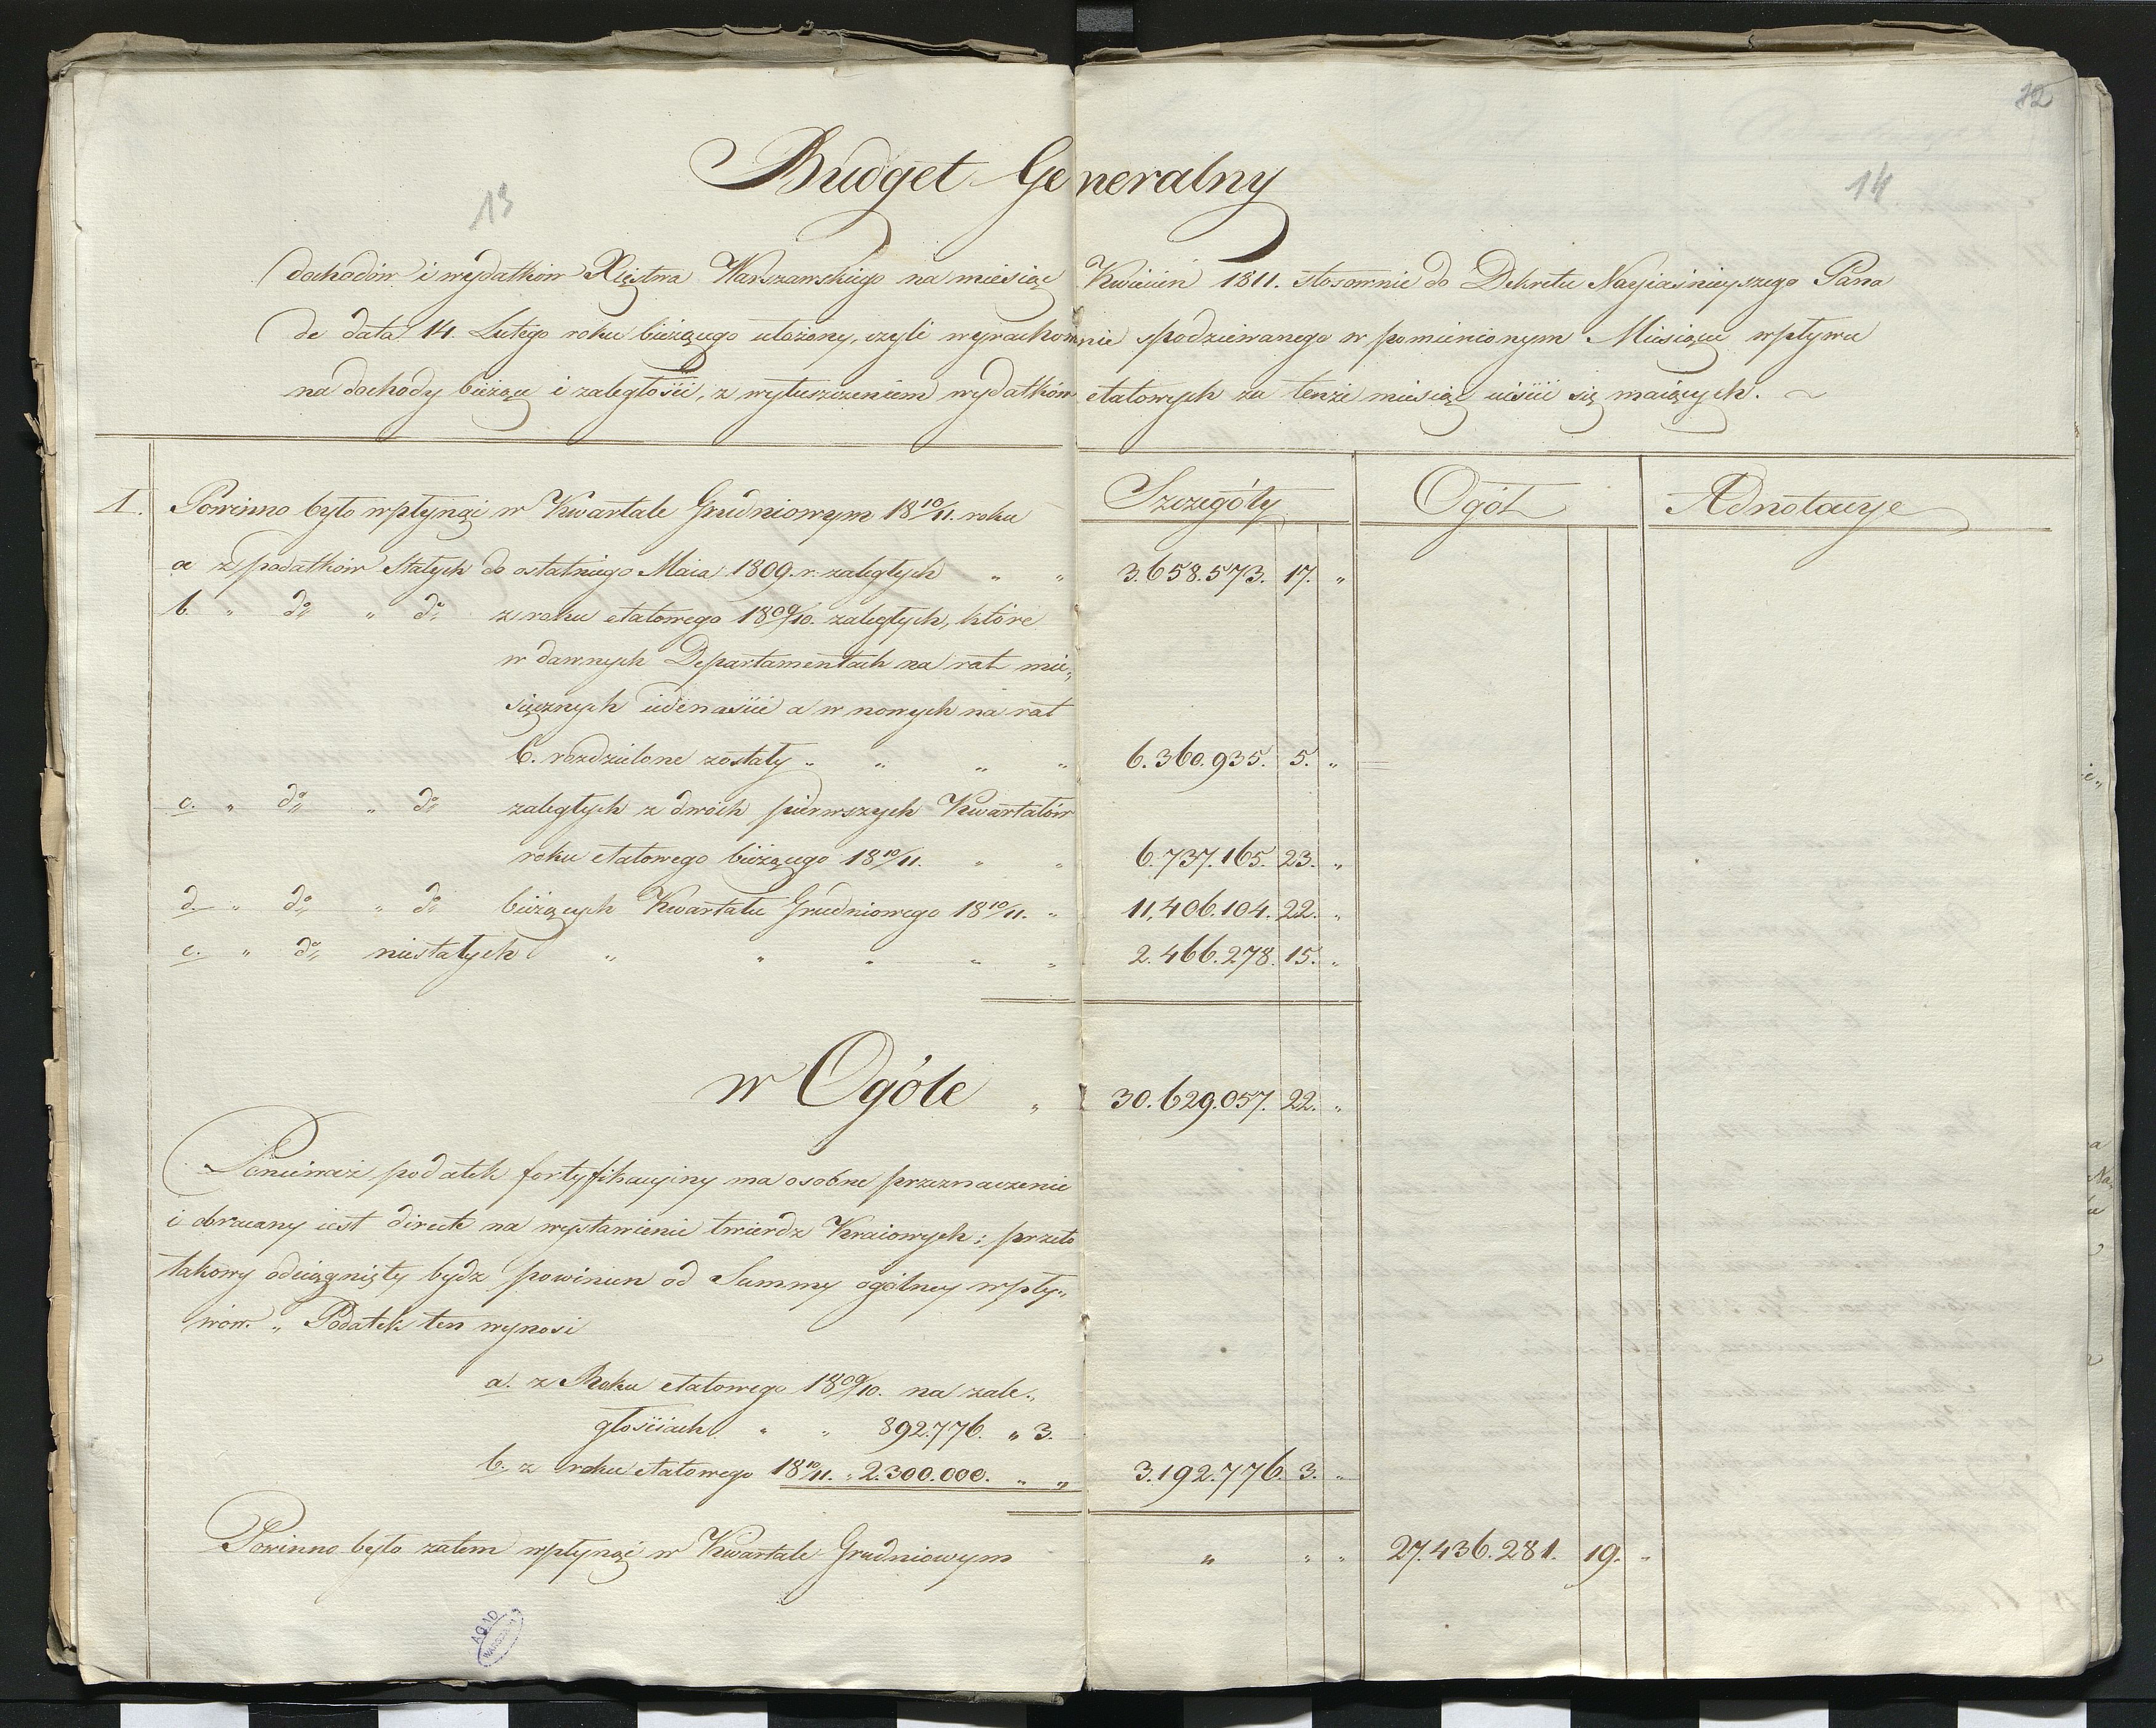 12
13
14
Budget Generalny
dochodów i wydatków Xięstwa Warszawskiego na miesiąc Kwiecień 1811. stosownie do Dekretu Nayiaśnieyszego Pana
de data 14. Lutego roku bieżącego ułożony, czyli wyrachownie spodziewanego w pomienionym Miesiącu wpływu
na dochody bieżące i zaległości, z wyłuszczeniem wydatków etatowych za tenże miesiąc uiścić się maiących.
Szczegóły Ogół Adnotacye
I. Powinno było wpłynąć w Kwartale Grudniowym 18 10/11. roku
a z podatków Stałych do ostatniego Maia 1809. r. zaległych " " 3.658.573. 17. "
b. " do " do z roku etatowego 18 09/10. zaległych, które
w dawnych Departamentach na rat mie„
sięcznych iedenaście a w nowych na rat
6. rozdzielone zostały " " " " 6.360.935. 5. "
c. " do " do zaległych z dwóch pierwszych Kwartałów
roku etatowego bieżącego 18 10/11. " " 6.737.165. 23. "
d. " do " do bieżących Kwartału Grudniowego 18 10/11. " 11,406.104. 22. "
e. " do niestałych " " " " " 2.466.278. 15. "
w Ogóle " 30.629.057. 22. "
Ponieważ podatek fortyfikacyiny ma osobne przeznaczenie
i obrucany iest directe na wystawienie twierdz Kraiowych; przeto
takowy odciągnięty bydz powinien od Summy ogólney wpły„
wów. „ Podatek ten wynosi
a. z Roku etatowego 18 09/10. na zale„
głościach " " 892.776. " 3.
b. z roku etatowego 18 10/11. " 2.300.000. " " 3.192.776. 3. "
Powinno było zatem wpłynąć w Kwartale Grudniowym " " " 27.436.281. 19. "
AGAD
WARSZAWA